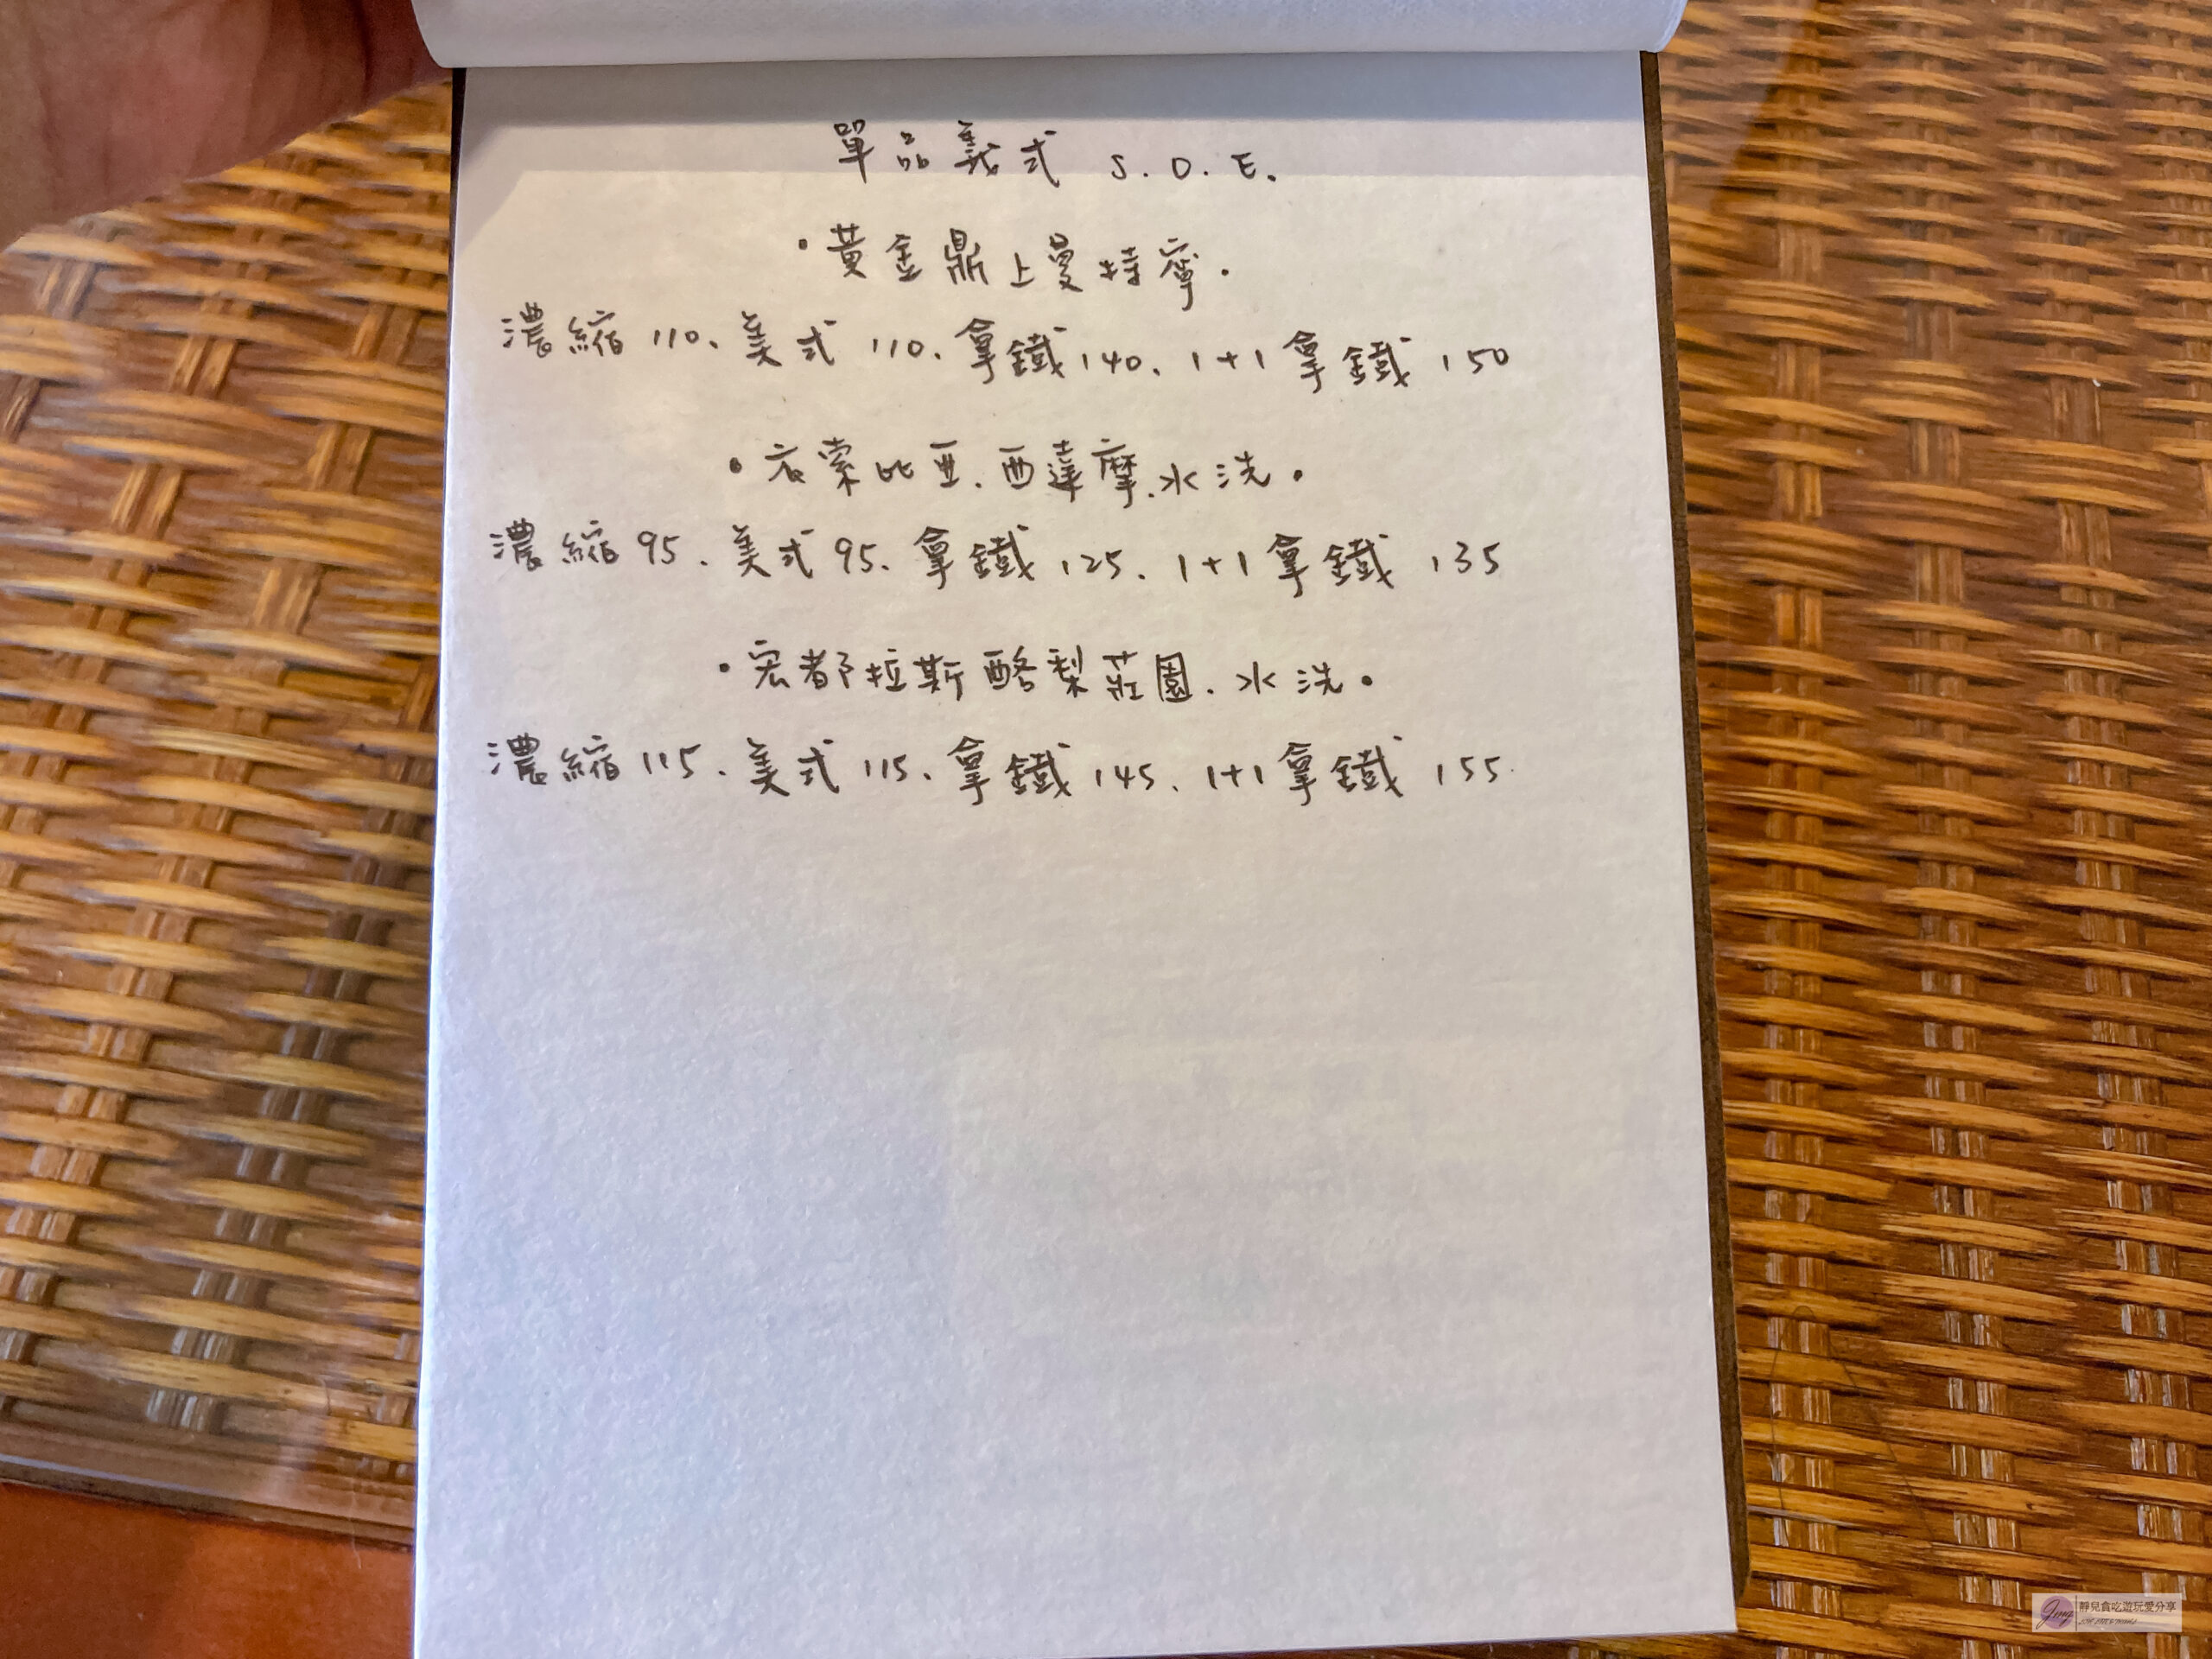 單品義式 S.O.E.
·黃金鼎上曼特寧.
濃縮110、美式110、拿鐵140、1+1拿鐵150
·衣索比亞.西達摩.水洗.
濃縮95.美式95、拿鐵125、1+1拿鐵135
·宏都拉斯酪梨莊園.水洗.
濃縮115、美式115、拿鐵145、1+1拿鐵155
靜兒貪吃遊玩愛分享